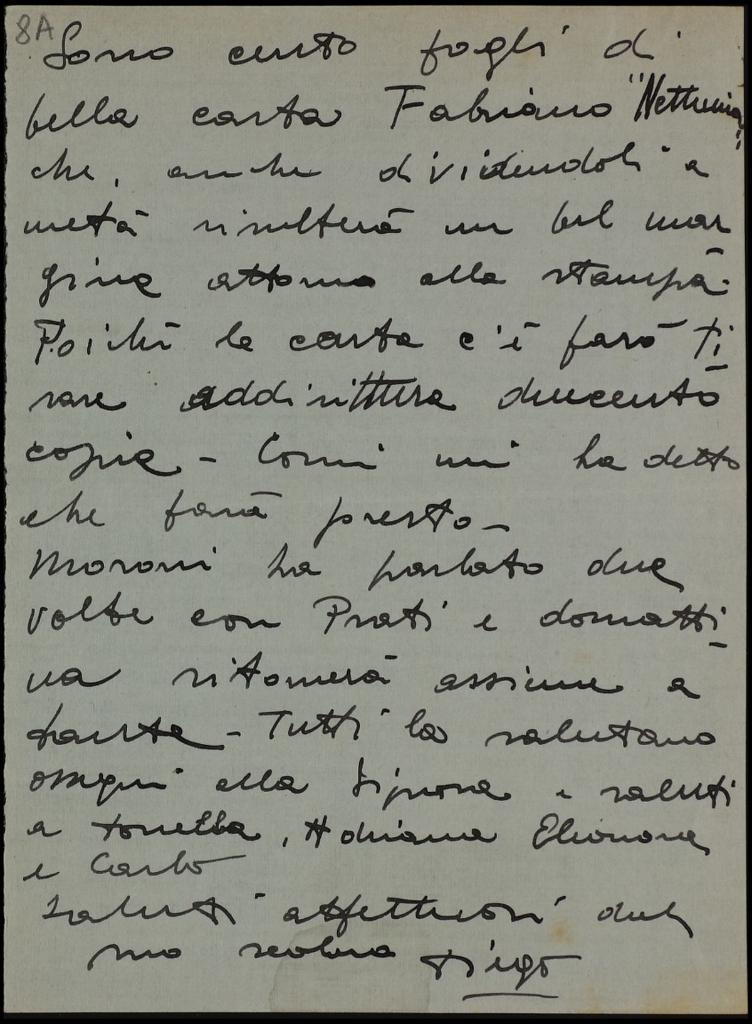 8A
Sono cento fogli di
bella carta Fabriano "Nettunia"
che, anche dividendoli a
metà risulterà un bel mar
gine attorno alla stampa.
Poichè la carta c'è farò ti
rare addirittura duecento
copie - Comi mi ha detto
che farà presto -
Moroni ha parlato due
volte con Prati e domatti
na ritornerà assieme a
- Tutti la salutano
ossequi alla Signora e saluti
a Adriana Eleonora
e Carlo
Saluti affettuosi dal
suo